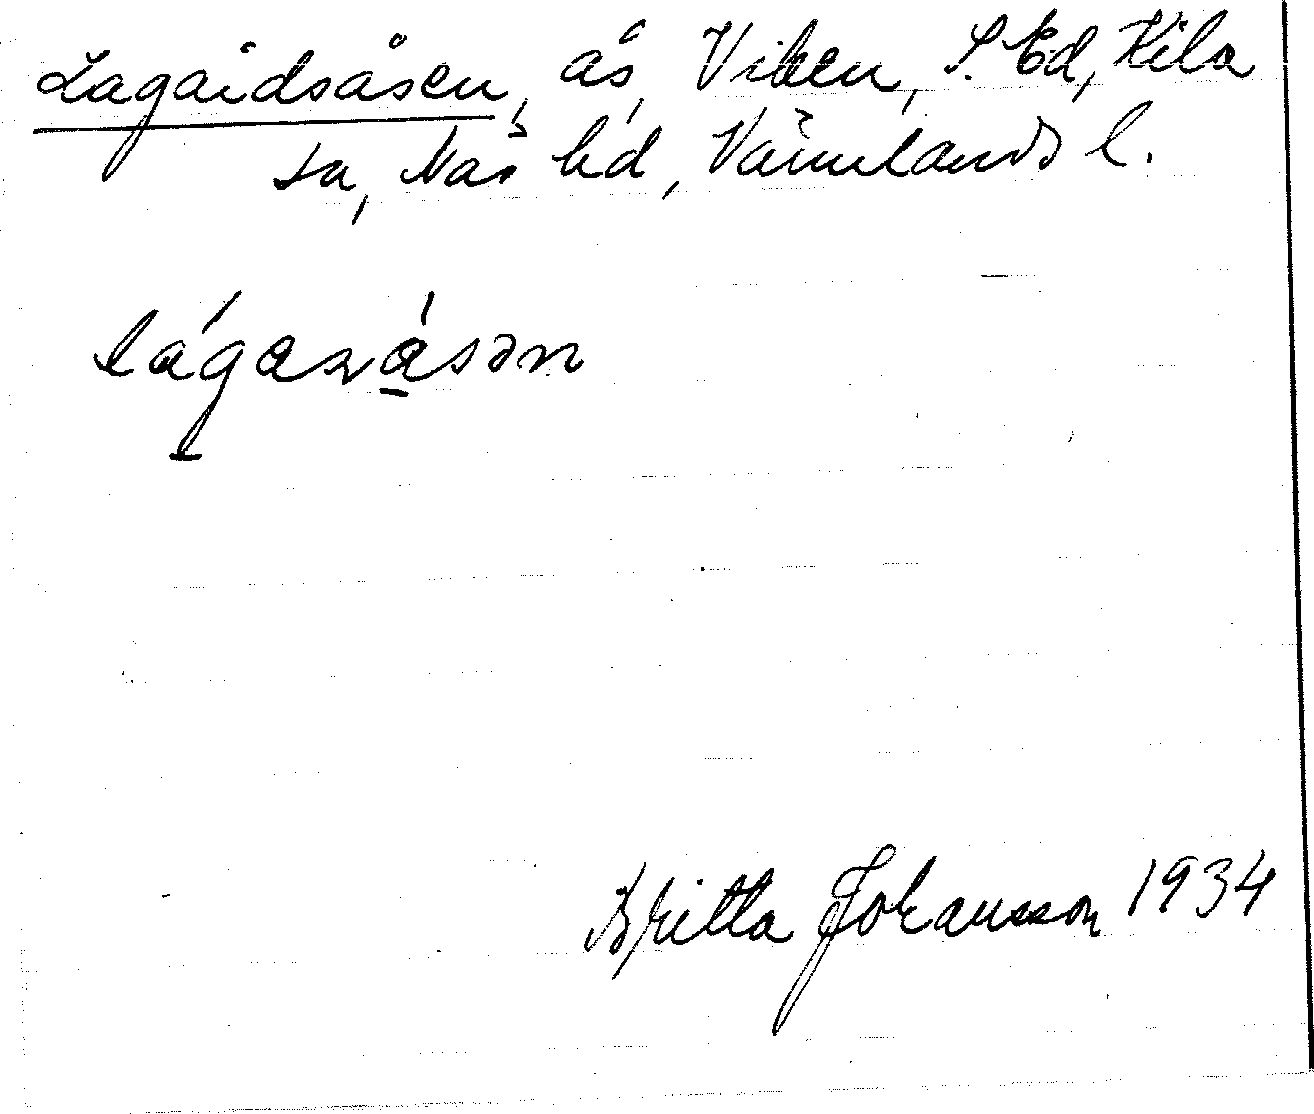 Lagaidsåsen, ås, Viken, S. Ed, Kila
sn, Näs hd, Värmlands l.
lágazåsən
Britta Johansson 1934